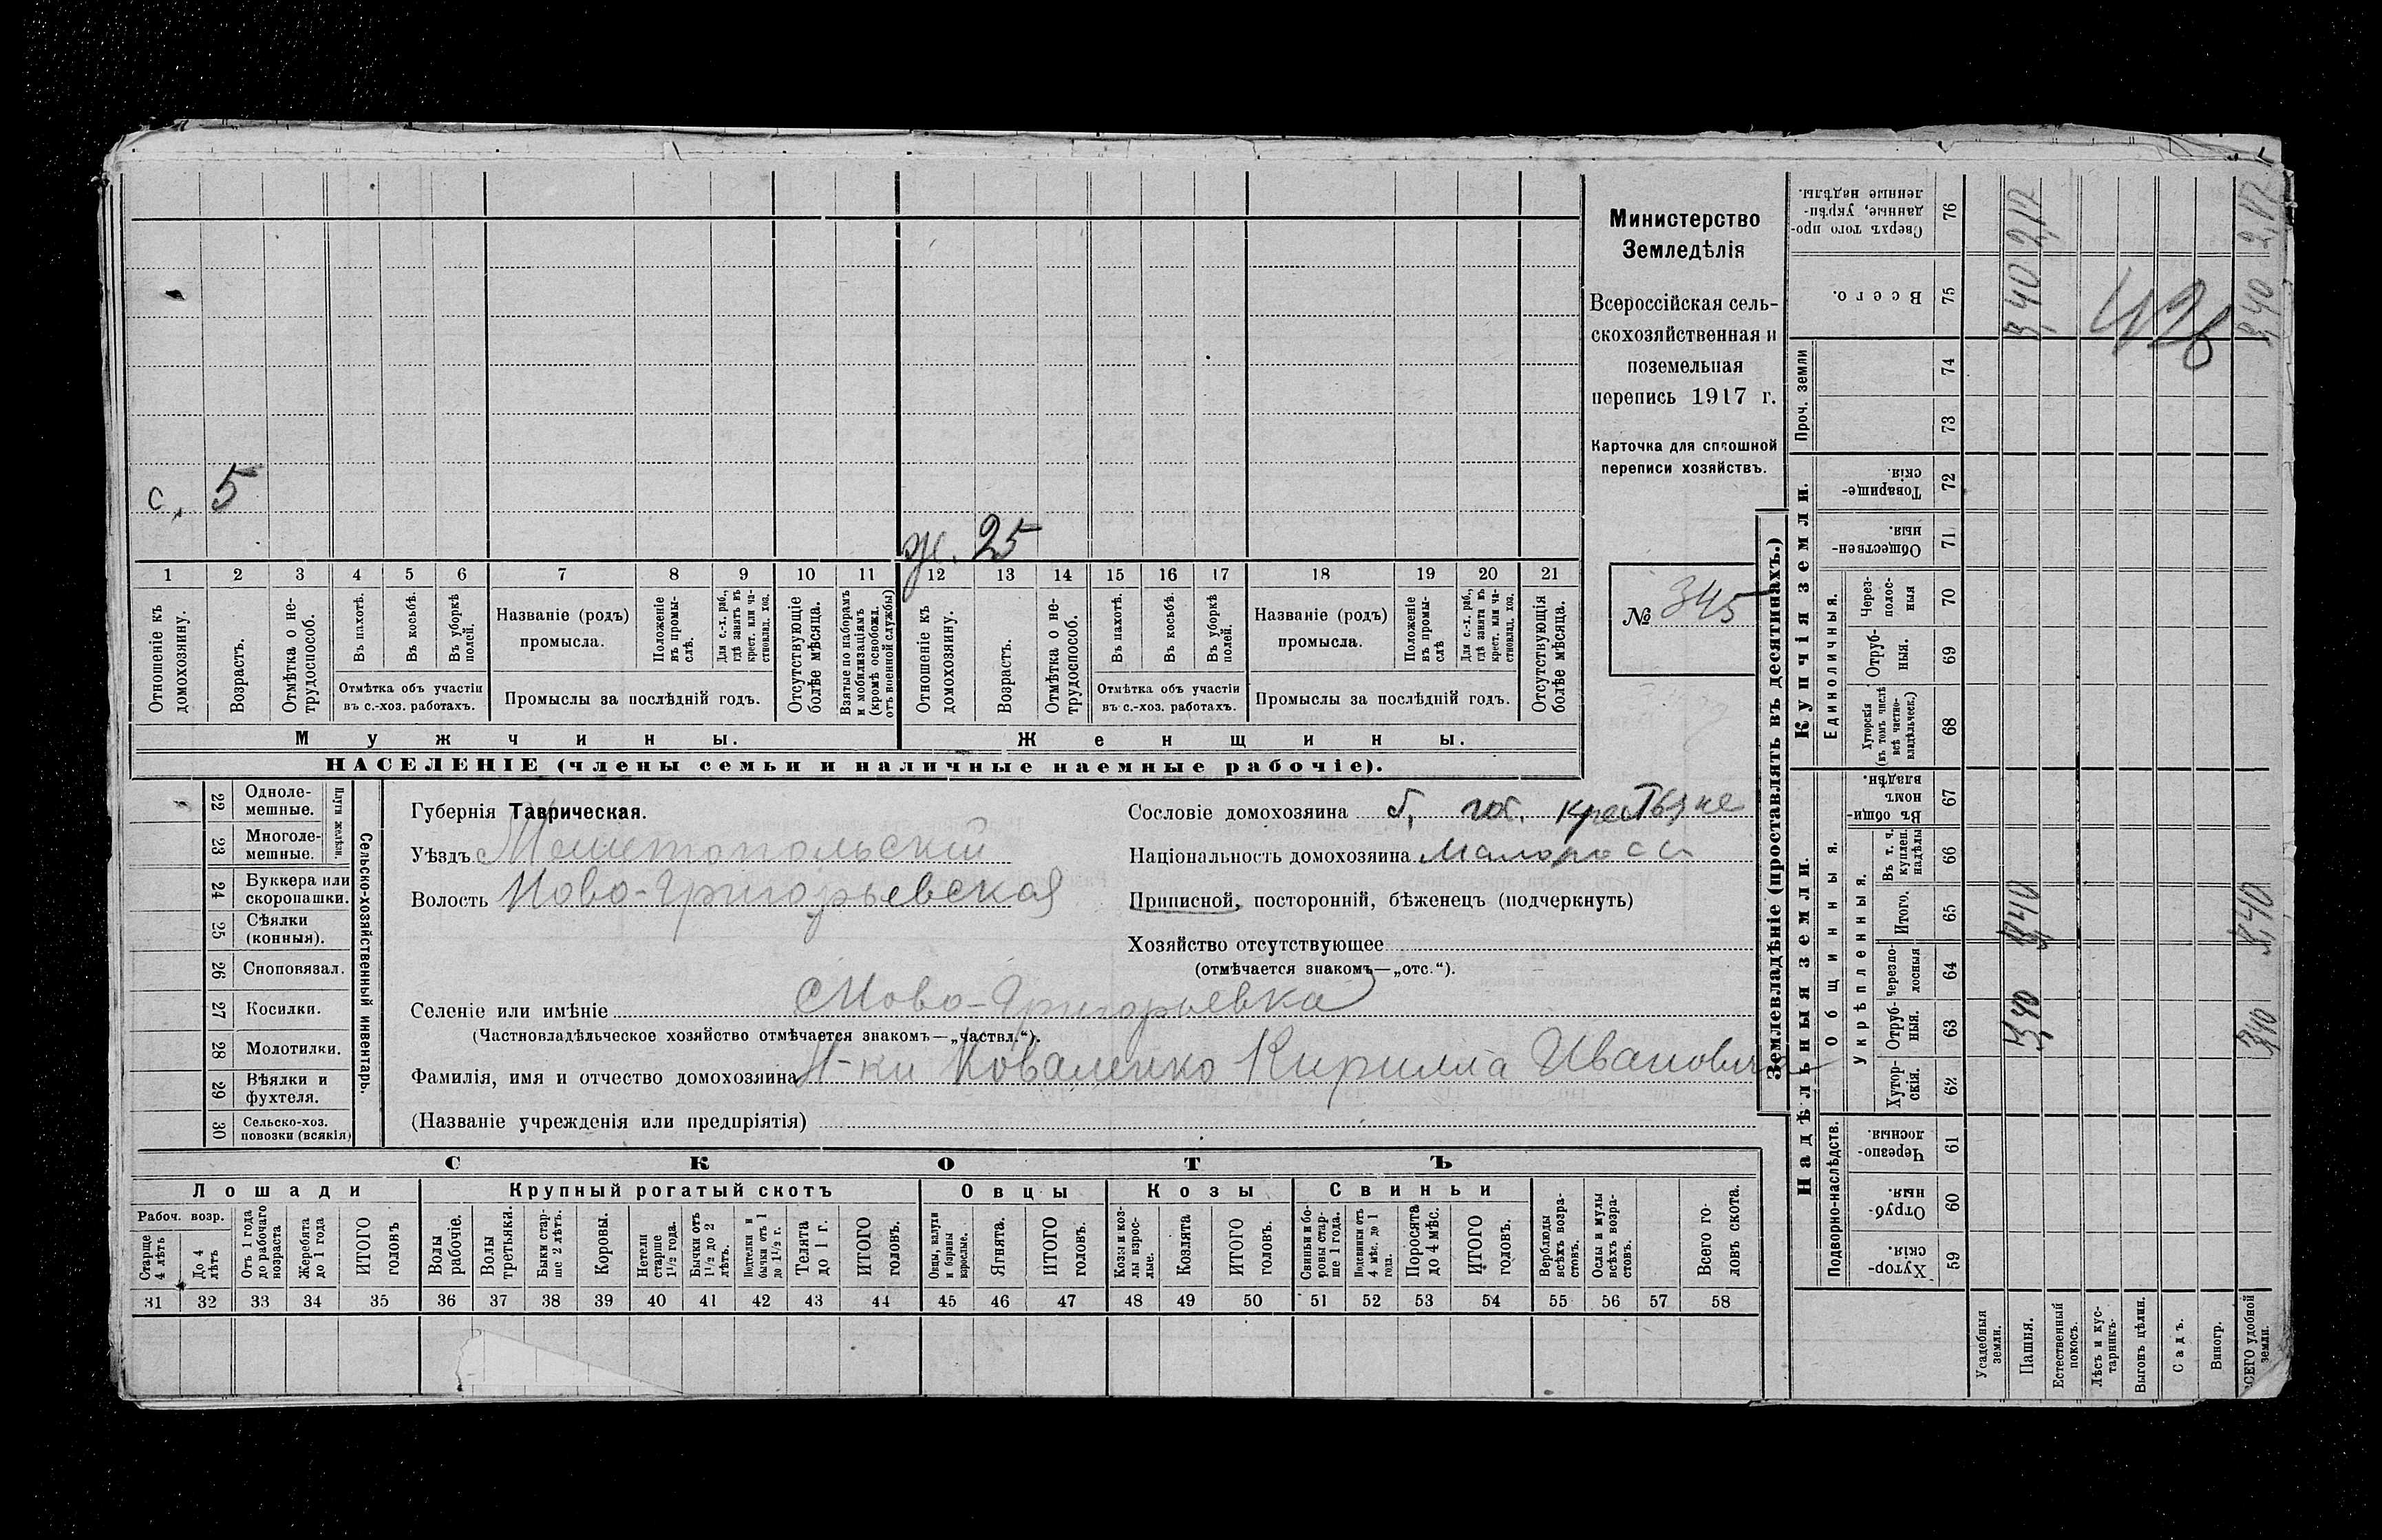 с. 5
ж. 25
1 2 3 4 5 6 7 8 9 10 11 12 13 14 15 16 17 18 19 20 21
Отношеніе къ домохозяину.
Возрастъ.
Отмѣтка о не-трудоспособ.
Въ пахотѣ.
Въ косьбѣ.
Въ уборкѣ полей.
Отмѣтка объ участіи въ с.-хоз. работахъ.
Названіе (родъ) промысла.
Положеніе въ промы-слѣ.
Для с.-х. раб., гдѣ занятъ въ крест. или ча-стновлад. хоз.
Промыслы за послѣдній годъ.
Отсутствующіе болѣе мѣсяца.
Взятые по наборамъ и мобилизаціямъ (кромѣ освобожд. отъ военной службы)
Отношеніе къ домохозяину.
Возрастъ.
Отмѣтка о не-трудоспособ.
Въ пахотѣ.
Въ косьбѣ.
Въ уборкѣ полей.
Отмѣтка объ участіи въ с.-хоз. работахъ.
Названіе (родъ) промысла.
Положеніе въ промы-слѣ
Для с.-х. раб., гдѣ занята въ крест. или ча-стновлад. хоз.
Промыслы за послѣдній годъ.
Отсутствующія болѣе мѣсяца.
Мужчины.
Женщины.
НАСЕЛЕНІЕ (члены семьи и наличные наемные рабочіе).
Министерство
Земледѣлія
Всероссійская сель-
скохозяйственная и
поземельная
перепись 1917 г.
Карточка для сплошной
переписи хозяйствъ.
№ 345
22 Одноле-мешные.
23 Многоле-мешные.
Плуги желѣзн.
24 Буккера или скоропашки.
25 Сѣялки (конныя).
26 Сноповязал.
27 Косилки.
28 Молотилки.
29 Вѣялки и фухтеля.
30 Сельско-хоз. повозки (всякія)
Сельско-хозяйственный инвентарь.
Губернія Таврическая.
Уѣздъ Мелитопольскій
Волость Ново-Григорьевская
Селеніе или имѣніе Ново-Григорьевка
(Частновладѣльческое хозяйство отмѣчается знакомъ—„частвл.“).
Фамилія, имя и отчество домохозяина Н-ки Коваленко Кирилла Ивановича
(Названіе учрежденія или предпріятія)
Сословіе домохозяина б. гос. крестьяне
Національность домохозяина Малоросси
Приписной, посторонній, бѣженецъ (подчеркнуть)
Хозяйство отсутствующее
(отмѣчается знакомъ—„отс.“).
СКОТЪ
Лошади
Крупный рогатый скотъ
Овцы
Козы
Свиньи
Рабоч. возр.
Старше 4 лѣтъ
До 4 лѣтъ
Отъ 1 года до рабочаго возраста
Жеребята до 1 года
ИТОГО головъ
Волы рабочіе.
Волы третьяки.
Быки стар-ше 2 лѣтъ.
Коровы.
Нетели старше 1½ года.
Бычки отъ 1½ до 2 лѣтъ.
Подтелки и бычки отъ 1 до 1½ г.
Телята до 1 г.
ИТОГО головъ.
Овцы, валухи и бараны взрослые.
Ягнята.
ИТОГО головъ.
Козы и коз-лы взрос-лые.
Козлята
ИТОГО головъ.
Свиньи и бо-ровы стар-ше 1 года.
Подсвинки отъ 4 мѣс. до 1 года.
Поросята до 4 мѣс.
ИТОГО головъ.
Верблюды всѣхъ возра-стовъ.
Ослы и мулы всѣхъ возра-стовъ.
Всего го-ловъ скота.
31 32 33 34 35 36 37 38 39 40 41 42 43 44 45 46 47 48 49 50 51 52 53 54 55 56 57 58
Землевладѣніе (проставлять въ десятинахъ.)
Сверхъ того про-данные, укрѣп-ленные надѣлы. 76 2,12 2,12
Всего. 75 3,40 3,40
426
Купчія земли.
Проч. земли
74
73
Товарище-скія. 72
Обществен-ныя. 71
Единоличныя.
Через-полос-ныя 70
Отруб-ныя. 69
Хуторскія (въ томъ числѣ всѣ частно-владѣльческ.) 68
Надѣльныя земли.
Общинныя.
Въ общи-номъ владѣн. 67
Укрѣпленныя.
Въ т. ч. куплен. надѣлы 66
Итого. 65 3,40 3,40
Черезпо-лосныя 64
Отруб-ныя. 63 3,40 3,40
Хутор-скія. 62
Подворно-наслѣдств.
Черезпо-лосныя. 61
Отруб-ныя. 60
Хутор-скія. 59
Усадебныя земли.
Пашня.
Естественный покосъ.
Лѣсъ и кус-тарникъ.
Выгонъ цѣлин.
Садъ.
Виногр.
ВСЕГО удобной земли.